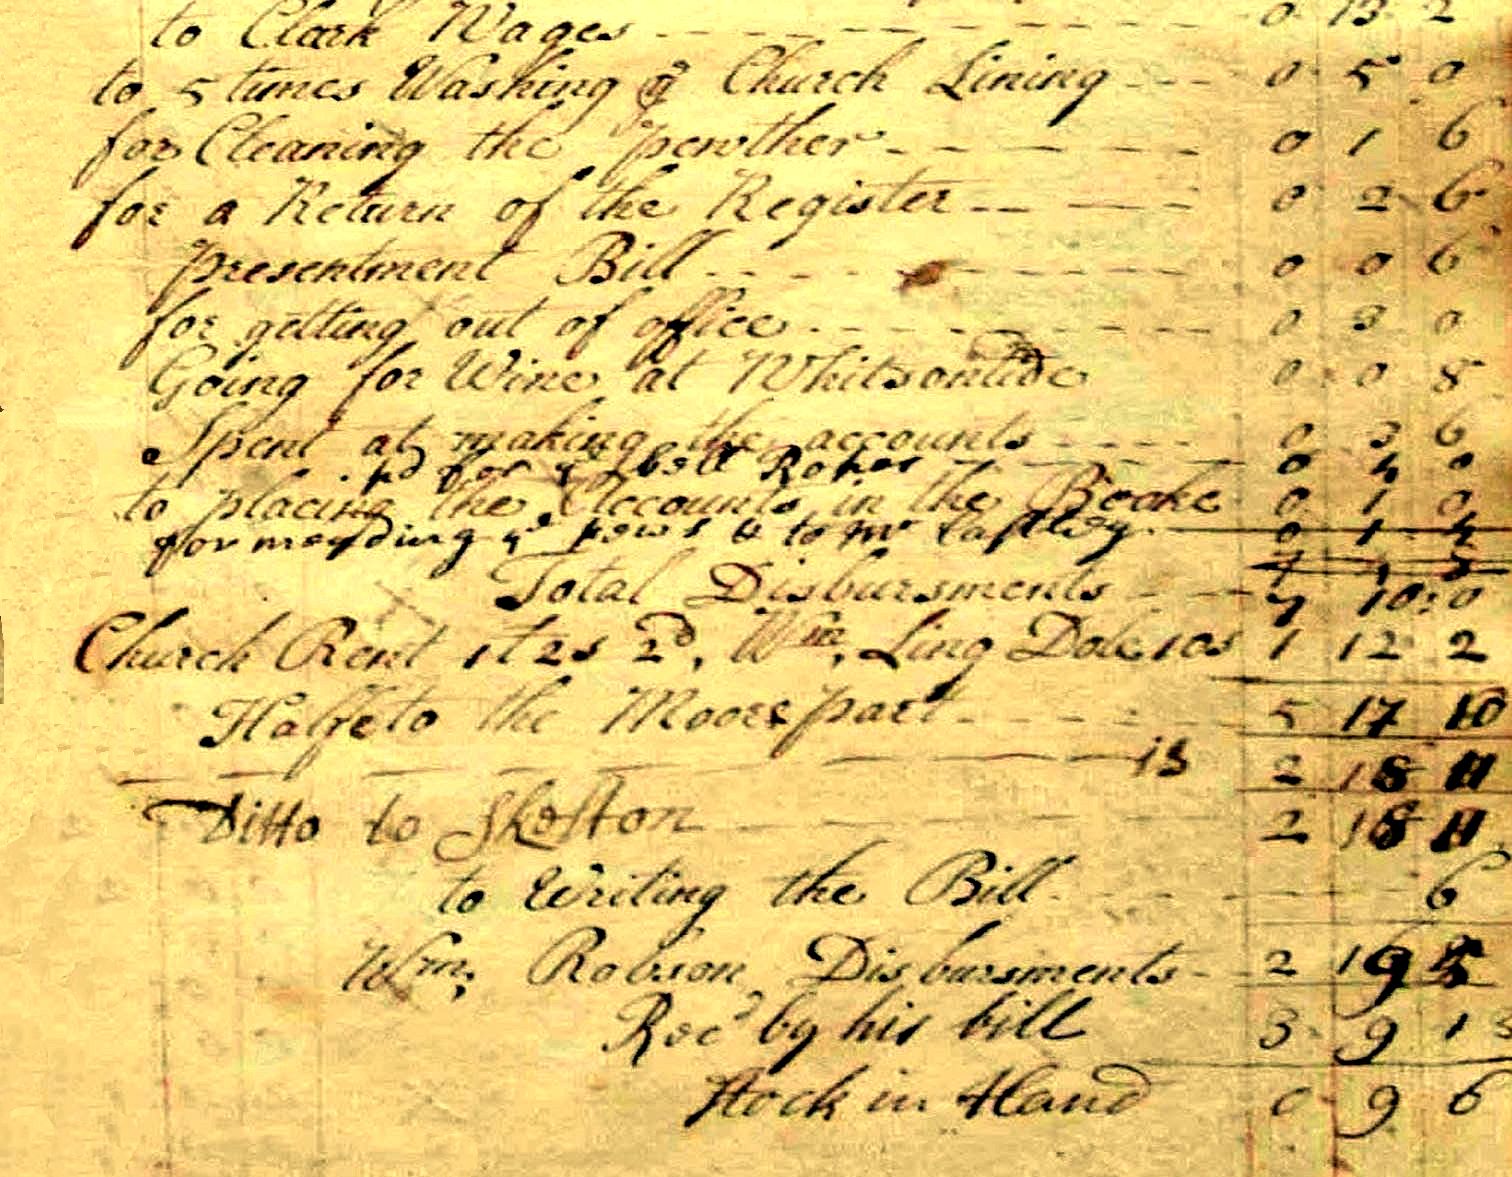 to Clark Wages 0 13 2
to 5 times Washing ye Church Lining 0 5 0
for Cleaning the pewther 0 1 6
for a Return of the Register 0 2 6
presentment Bill 0 0 6
for getting out of office 0 3 0
Going for Wine at Whitsontide 0 0 8
Spent at making the accounts 0 3 6
pd for ye bell Ropes 0 4 0
to placing the Accounts in the Booke 0 1 0
for mending ye pews & to Mr 0 1 4
Total Disbursments 7 10 0
Church Rent 1£ 2s 2d, Wm, Ling Dale 10s 1 12 2
Halfe to the Moors part 5 17 10
is 2 18 11
Ditto to Skelton 2 18 11
to Writing the Bill 6
Wm, Robson, Disbursments 2 19 5
Recd by his bill 3 9 1
Stock in Hand 0 9 6